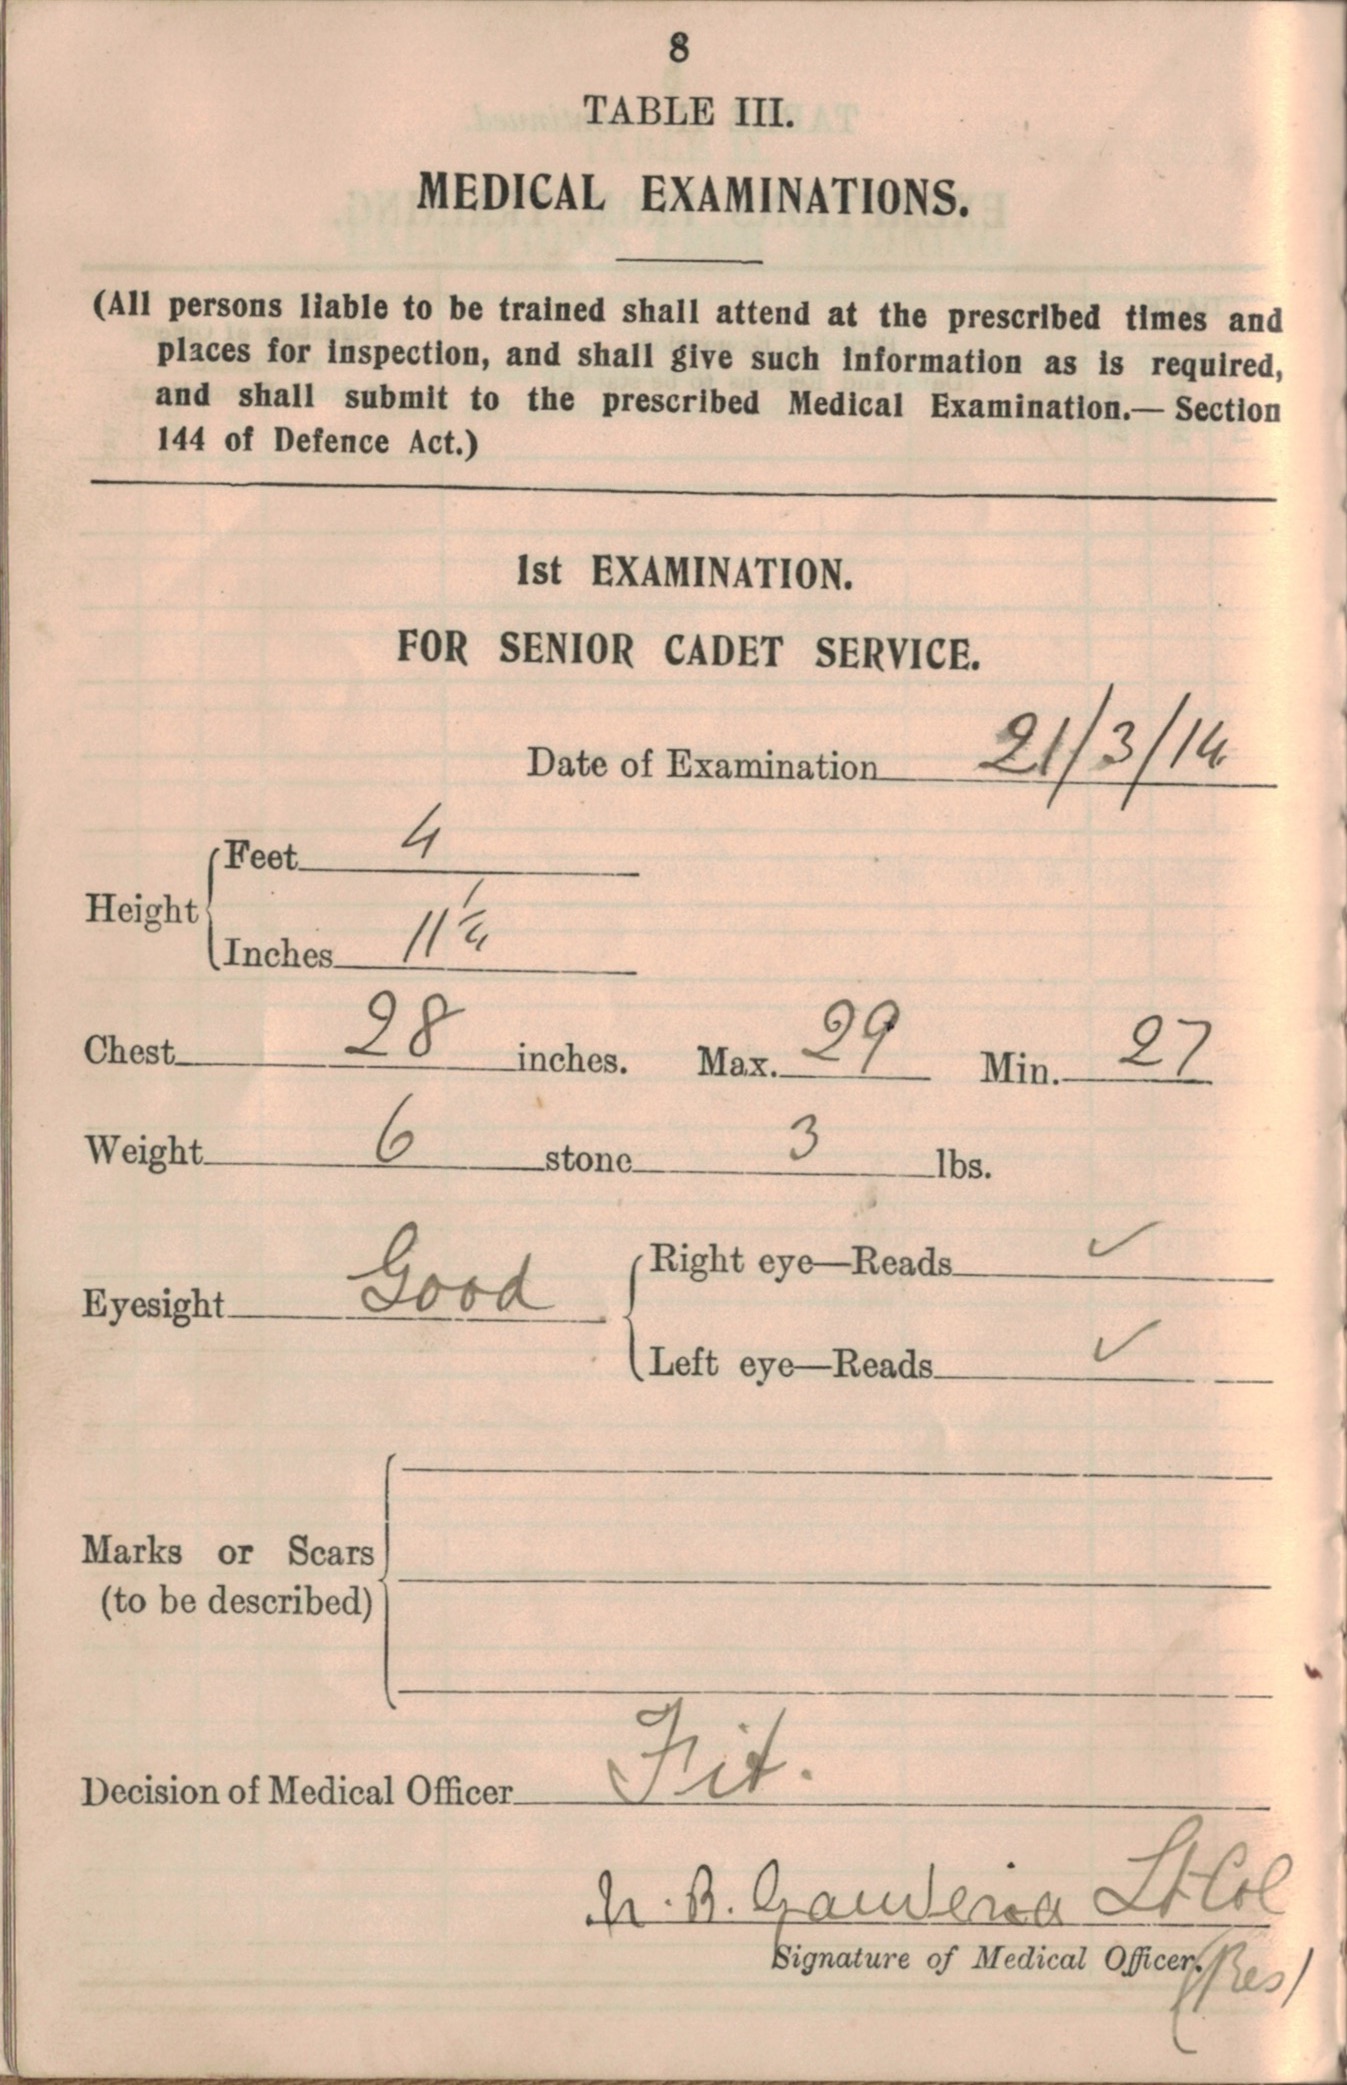 8
TABLE III.
MEDICAL EXAMINATIONS.
(All persons liable to be trained shall attend at the prescribed times and
places for inspection, and shall give such information as is required,
and shall submit to the prescribed Medical Examination.— Section
144 of Defence Act.)
1st EXAMINATION.
FOR SENIOR CADET SERVICE.
Date of Examination 21/3/14
Height
Feet 4
Inches 11 1/4
Chest 28 inches. Max. 29 Min. 27
Weight 6 stone 3 lbs.
Eyesight Good
Right eye—Reads ✓
Left eye—Reads ✓
Marks or Scars
(to be described)
Decision of Medical Officer Fit.
B. Lt Col
Signature of Medical Officer. (Res)